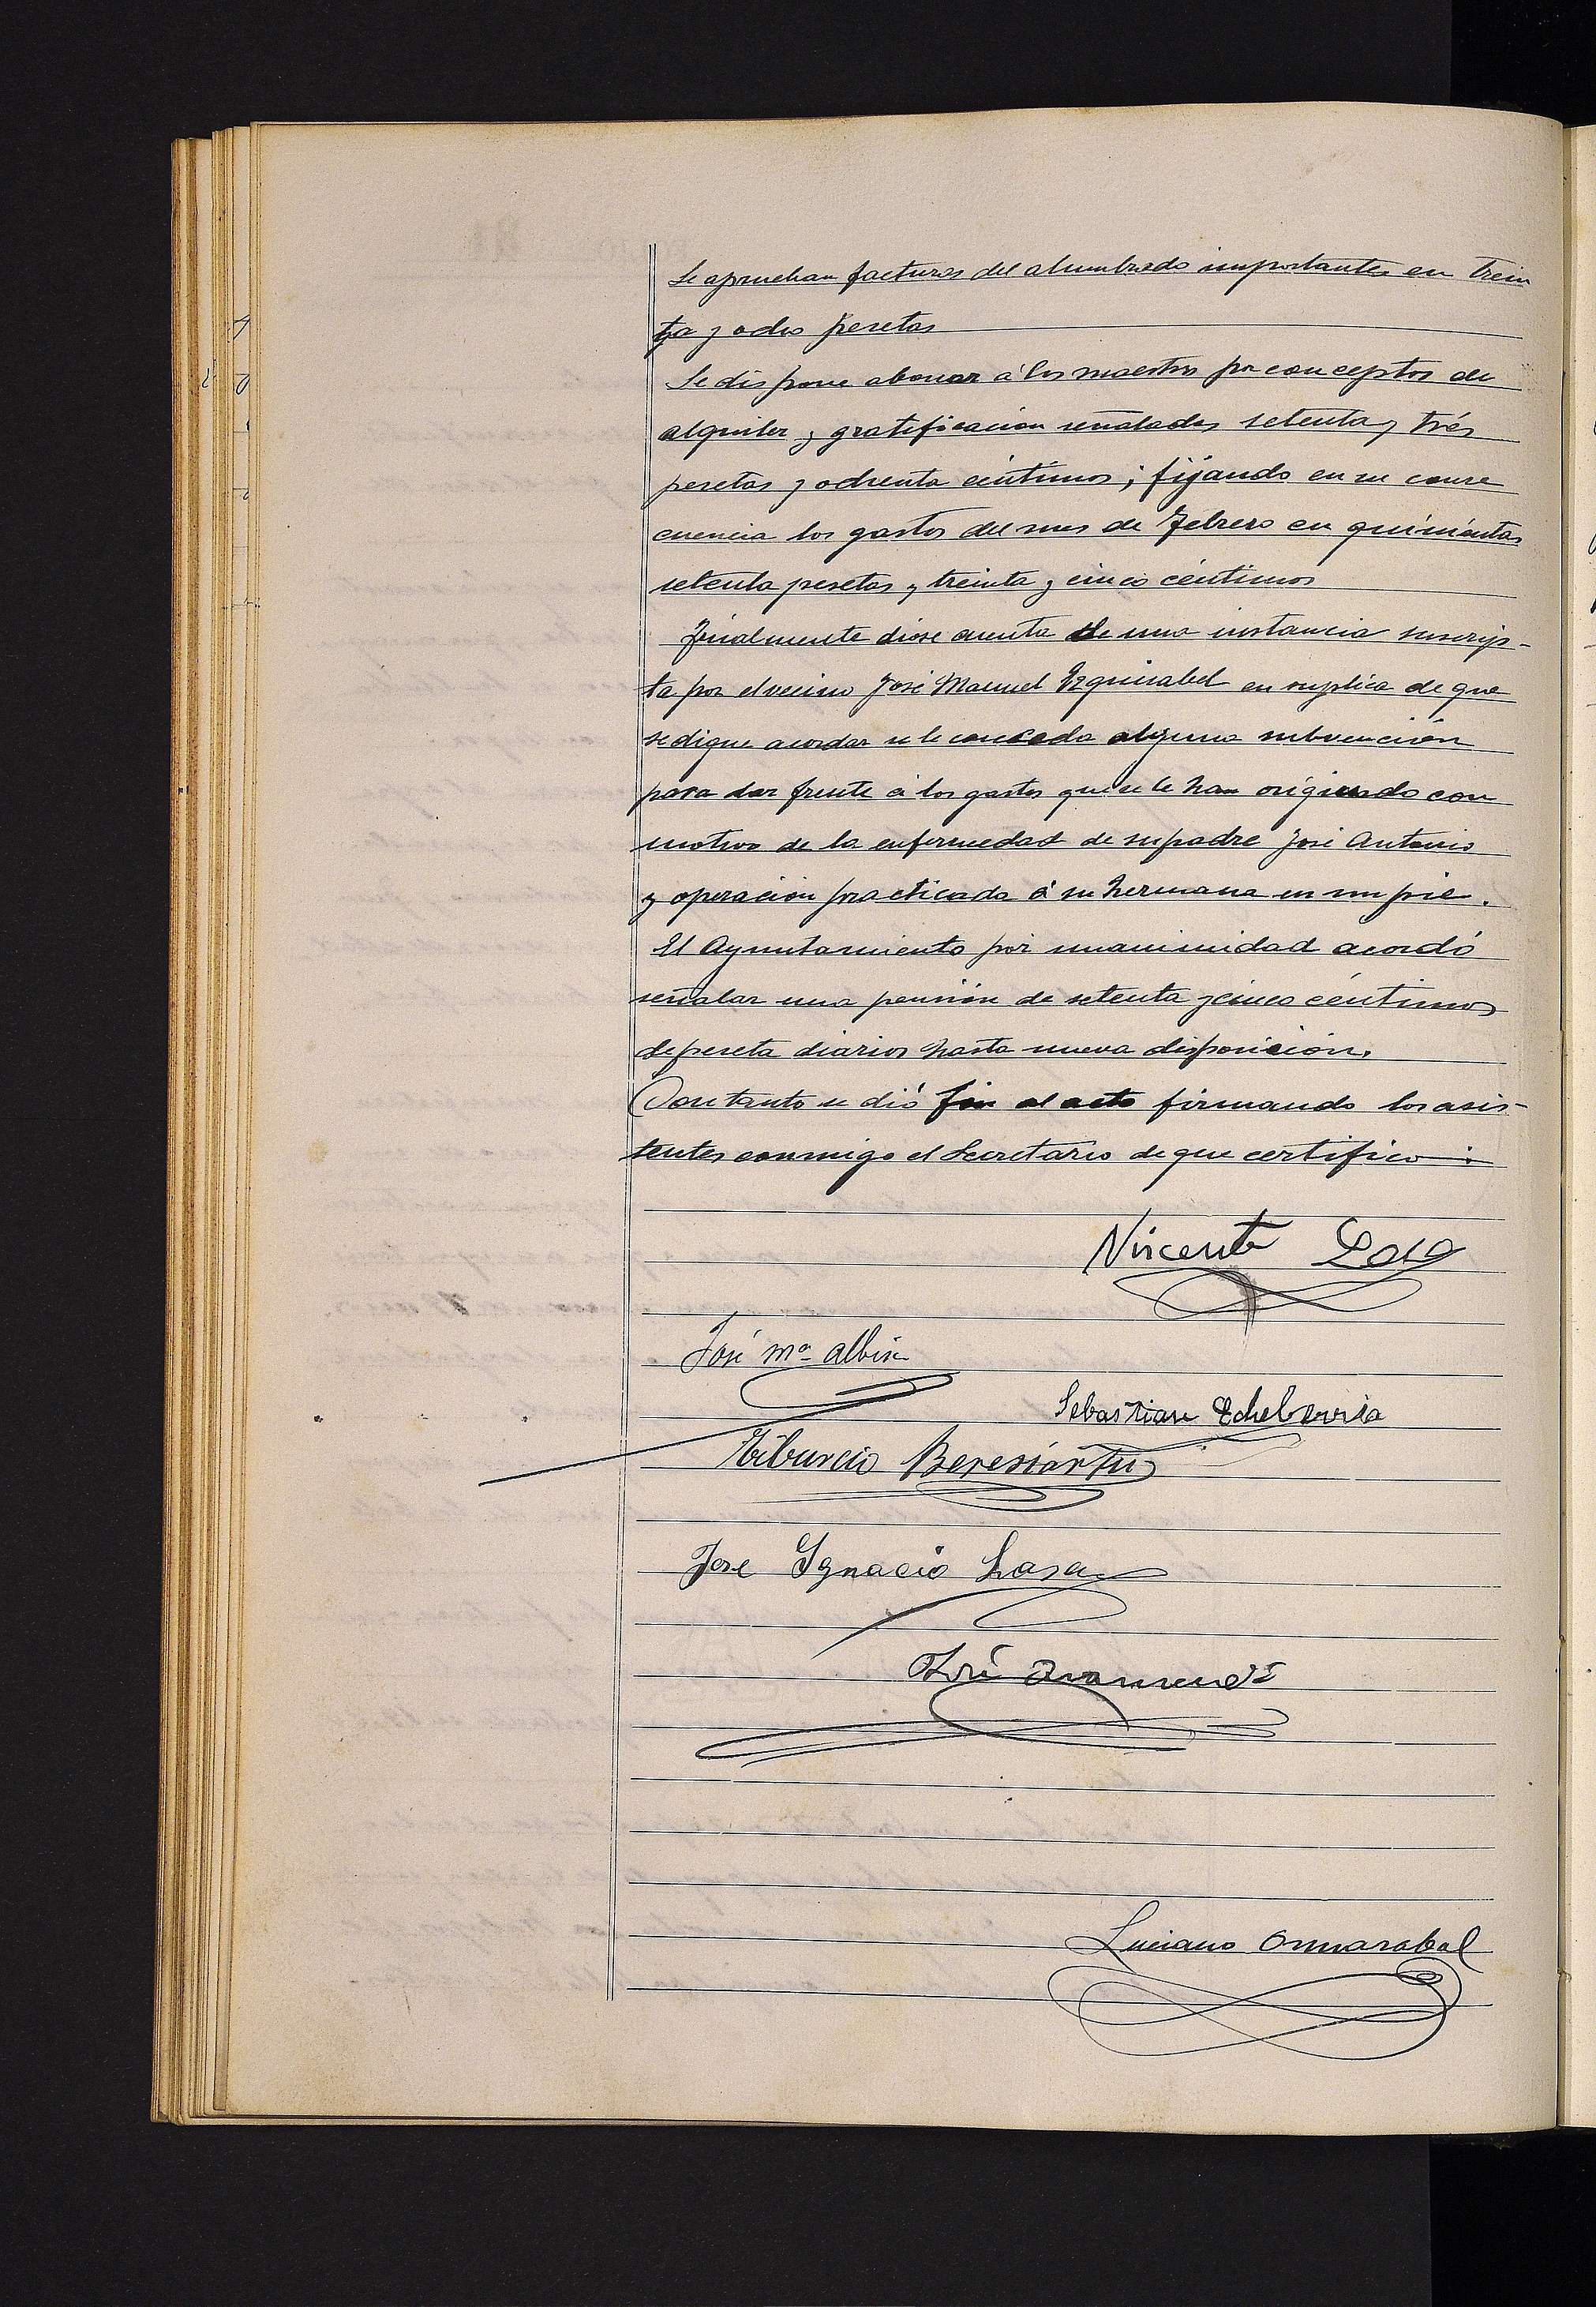 Se aprueban facturas del alumbrado importantes en trein
ta y ocho pesetas
Se dispone abonar á los maestros por conceptos de
alquiler y gratificacion señalados setenta y trés
pesetas y ochenta céntimos; fijando en su conse
cuencia los gastos del mes de Febrero en quinientas
setenta pesetas y treinta y cinco céntimos
Finalmente diose cuenta de una instancia suscrip-
ta por el vecino José Manuel Izquirabel en suplica de que
se digne acordar se le conceda alguna subvención
para dar frente á los gastos que se le han originado con
motivo de la enfermedad de su padre José Antonio
y operación practicada á su hermana en un pie.
El Ayuntamiento por unanimidad acordó
señalar una pensión de setenta y cinco céntimos
de peseta diarios hasta nueva disposición.
Con tanto se dió fin al acto firmando los asis-
tentes conmigo el Secretario de que certifico
Vicente Lasa
José Mª Albisu
Sebastian Echeberria
Tiburcio Beresiartu
José Ignacio Lasa
José Aramendi
Luciano Ormazabal